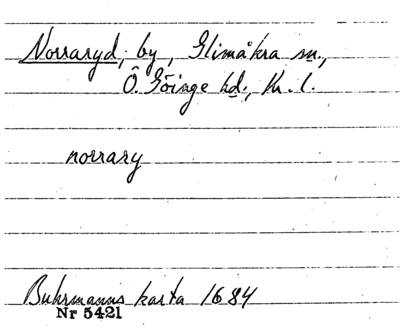 Norraryd, by, Glimåkra sn.,
Ö. Göinge hd., Kr. l.
norrary
Buhrmanns karta 1684
Nr 5421